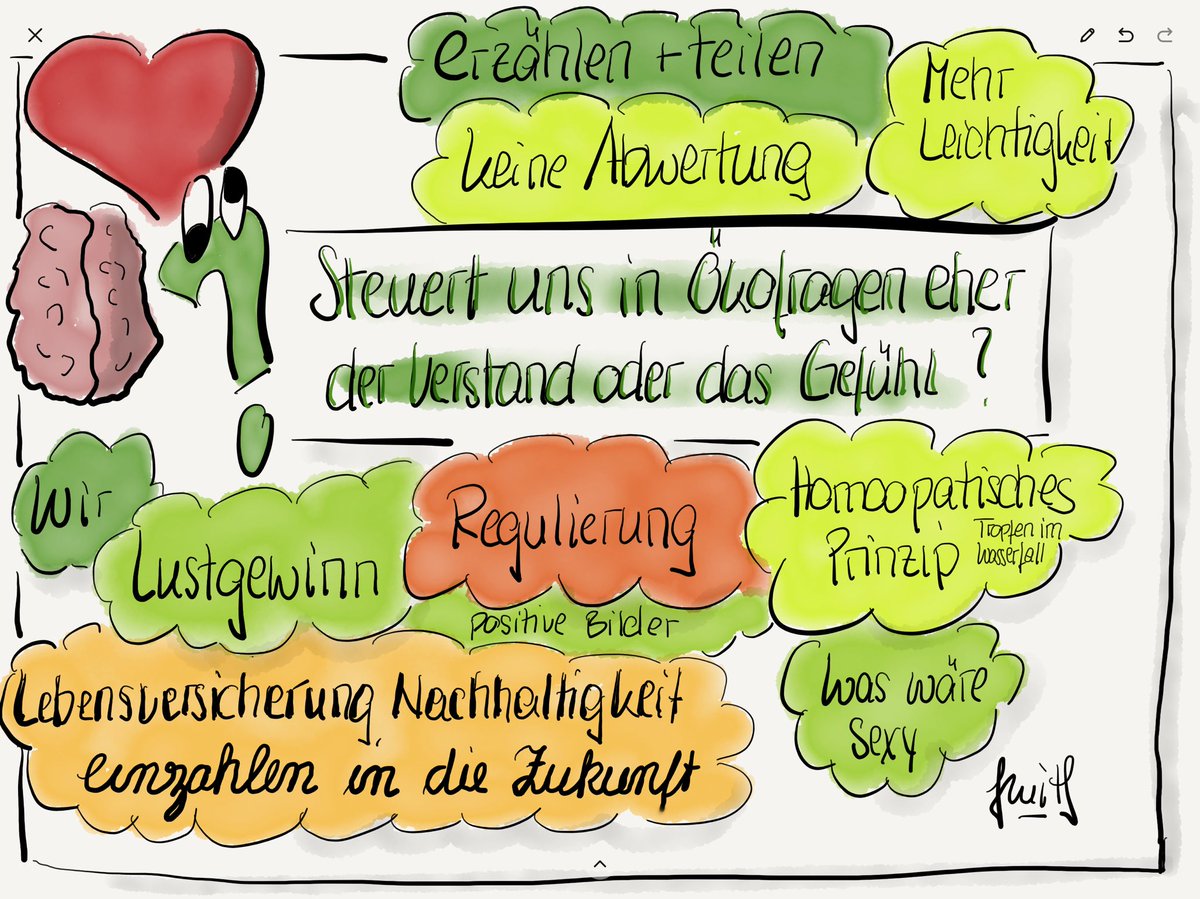 erzählen + teilen
keine Abwertung
Mehr
Leichtigkeit
Steuert uns in Ökofragen eher
der Verstand oder das Gefühl ?
Wir
Lustgewinn
Regulierung
positive Bilder
Homöopatisches
Prinzip
Tropfen im
Wasserfall
Lebensversicherung Nachhaltigkeit
einzahlen in die Zukunft
Was wäre
Sexy